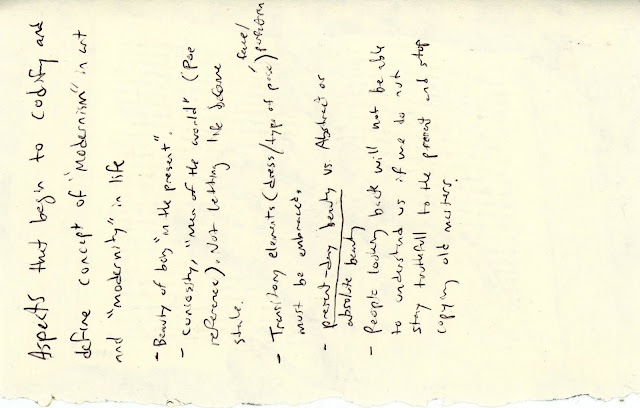 Aspects that begin to codify and
define concept of "Modernism" in art
and "modernity" in life
- Beauty of being "in the present".
- Curiosity, "Man of the world" (Poe
reference). Not letting life become
stale.
- Transitory elements (dress/type of pose/
face/
position
must be embraced.
- present-day beauty vs. Abstract or
absolute beauty
- People looking back will not be able
to understand us if we do not
stay truthful to the present and stop
copying old masters.